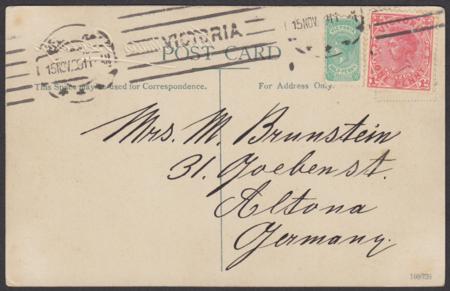 VICTORIA
15 NOV
15 NOV
POST CARD
This Space may be used for Correspondence.
For Address Only.
Mrs. M. Brunstein
31. Goebenst.
Altona
Germany.